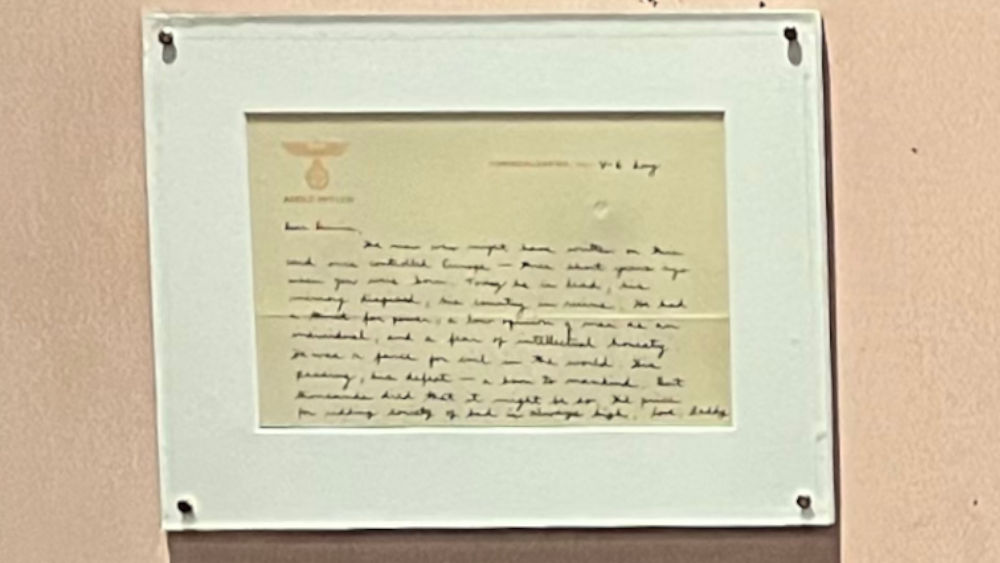 ADOLF HITLER
V-E day
Dear Dennis,
The man who might have written on this
card once controlled Europe — three short years ago
when you were born. Today he is dead, his
memory despised, his country in ruins. He had
a thirst for power, a low opinion of man as an
individual, and a fear of intellectual honesty.
He was a force for evil in the world. His
passing, his defeat — a boon to mankind. But
thousands died that it might be so. The price
for ridding society of bad is always high. Love, Daddy